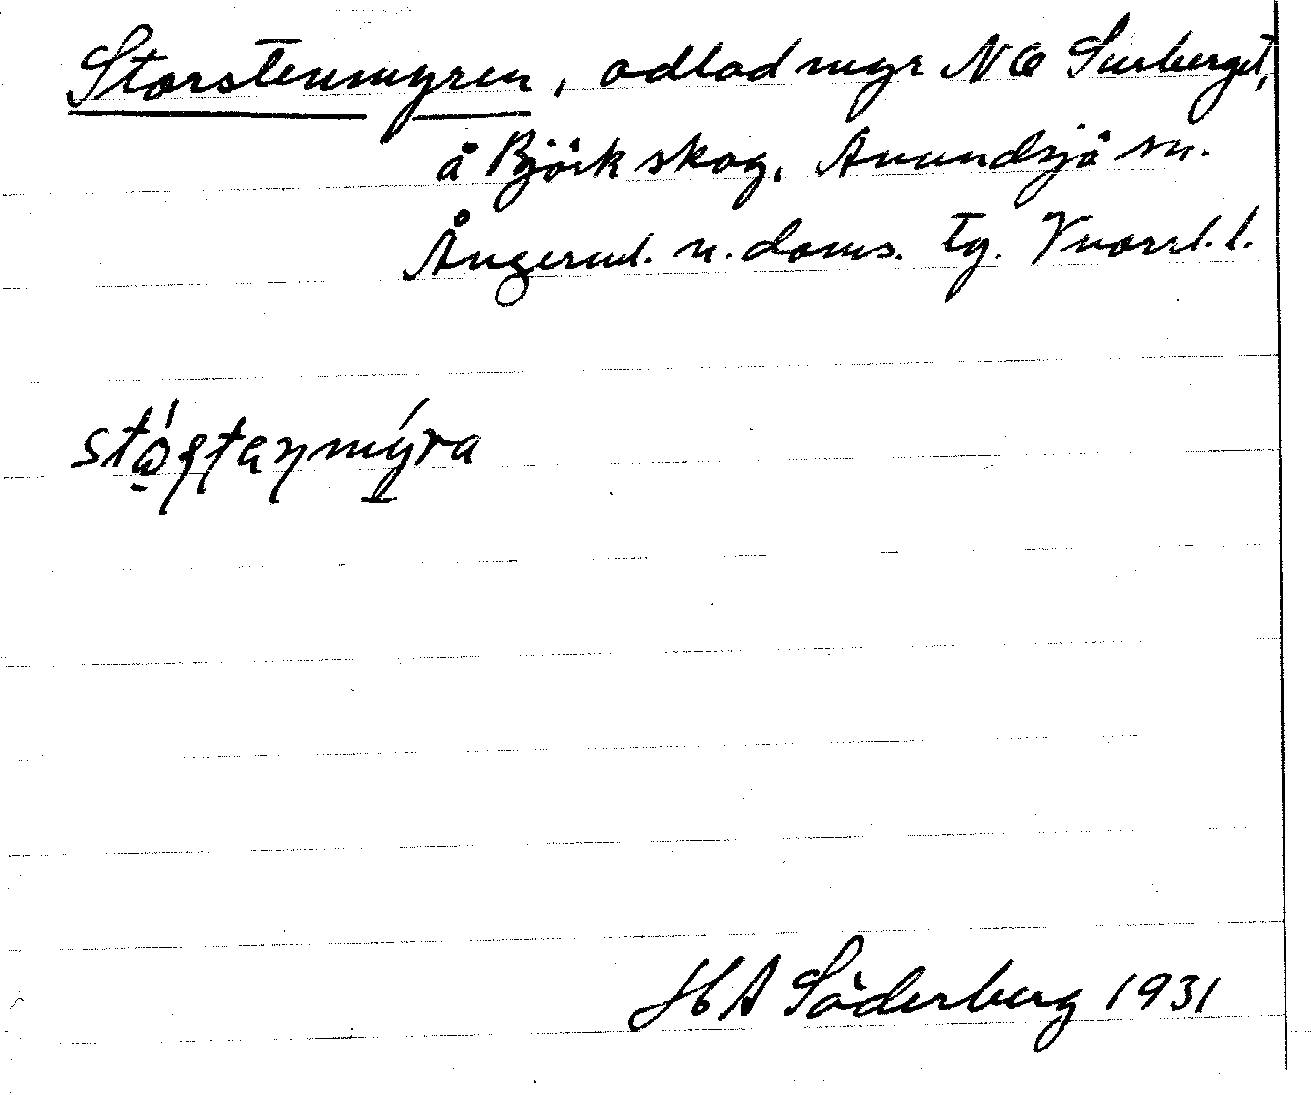 Storstenmyren, odlad myr NO Surberget,
å Björkskog, Anundsjö sn.
Ångerml. n. doms. tg. Vnorrl. l.
H A Söderberg 1931